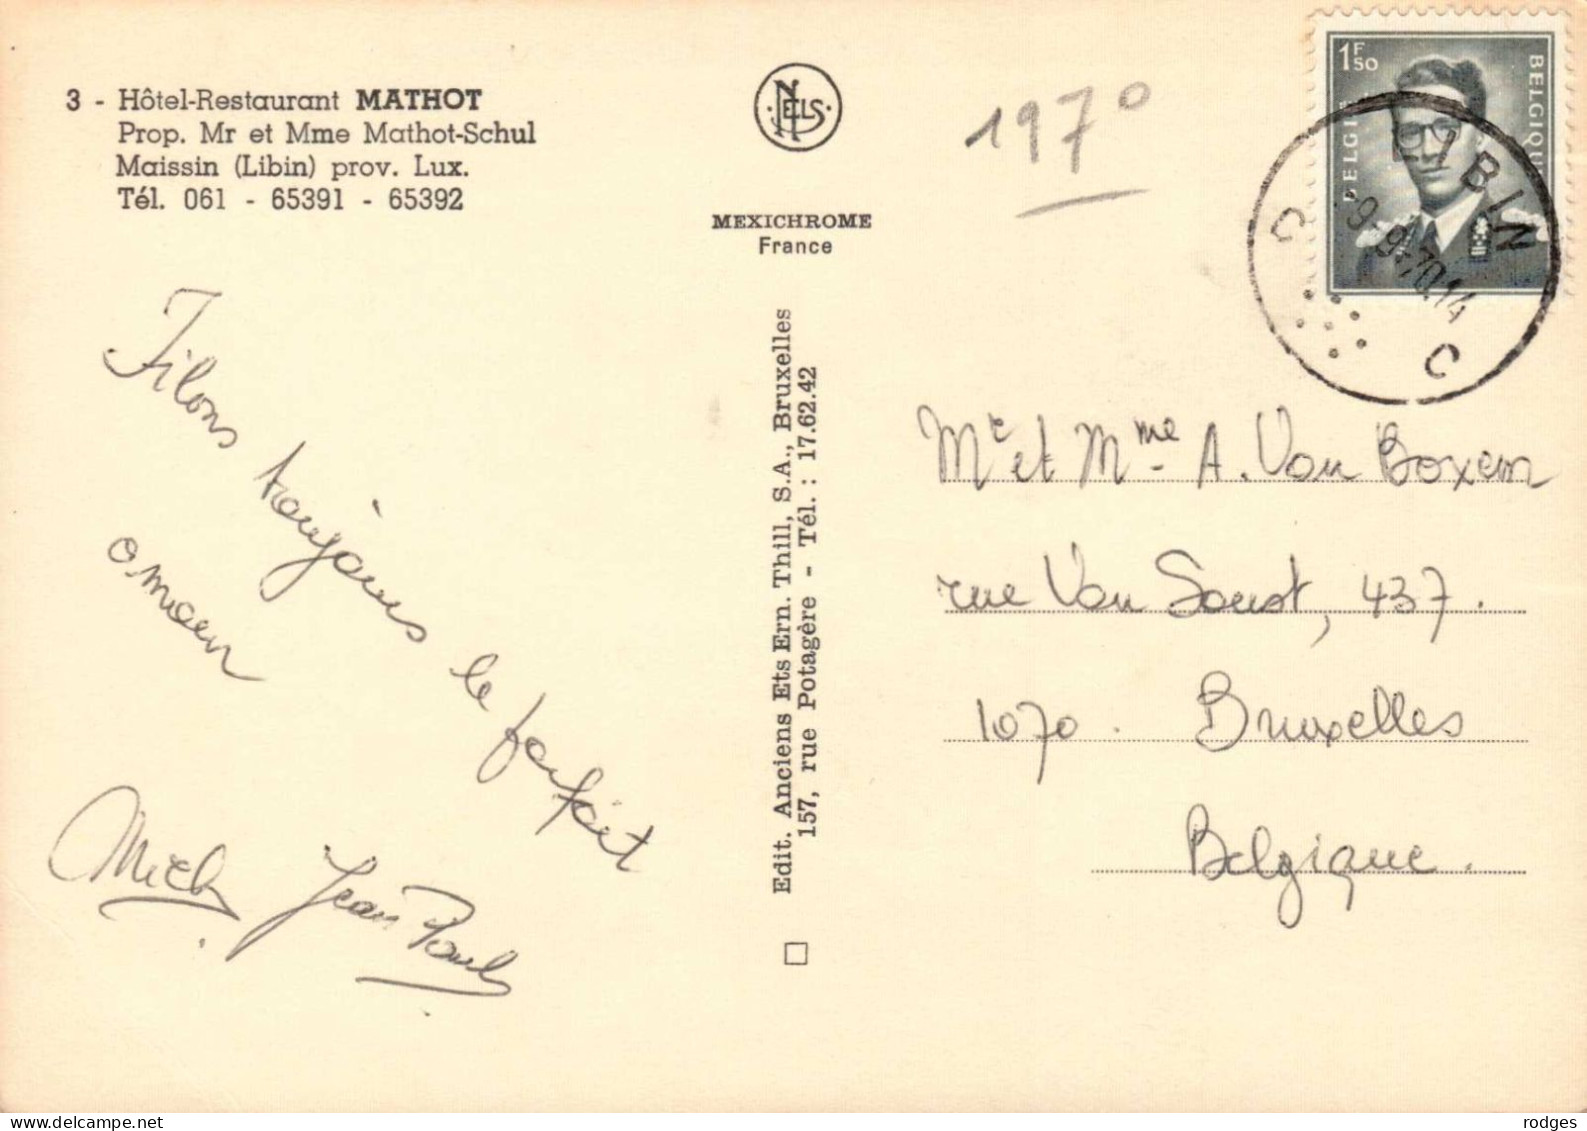 3 - Hôtel-Restaurant MATHOT
Prop. Mr et Mme Mathot-Schul
Maissin (Libin) prov. Lux.
Tél. 061 - 65391 - 65392
NELS
MEXICHROME
France
1970
1F50
BELGIE
BELGIQUE
LIBIN
-9-9-70.14
C
C
Edit. Anciens Ets Ern. Thill, S.A., Bruxelles
157, rue Potagère - Tél. : 17.62.42
Filons toujours le parfait
amour
Mich
Jean Paul
Mr et Mme A. Van Boxem
rue Van Soust, 437.
1070. Bruxelles
Belgique.
rodges